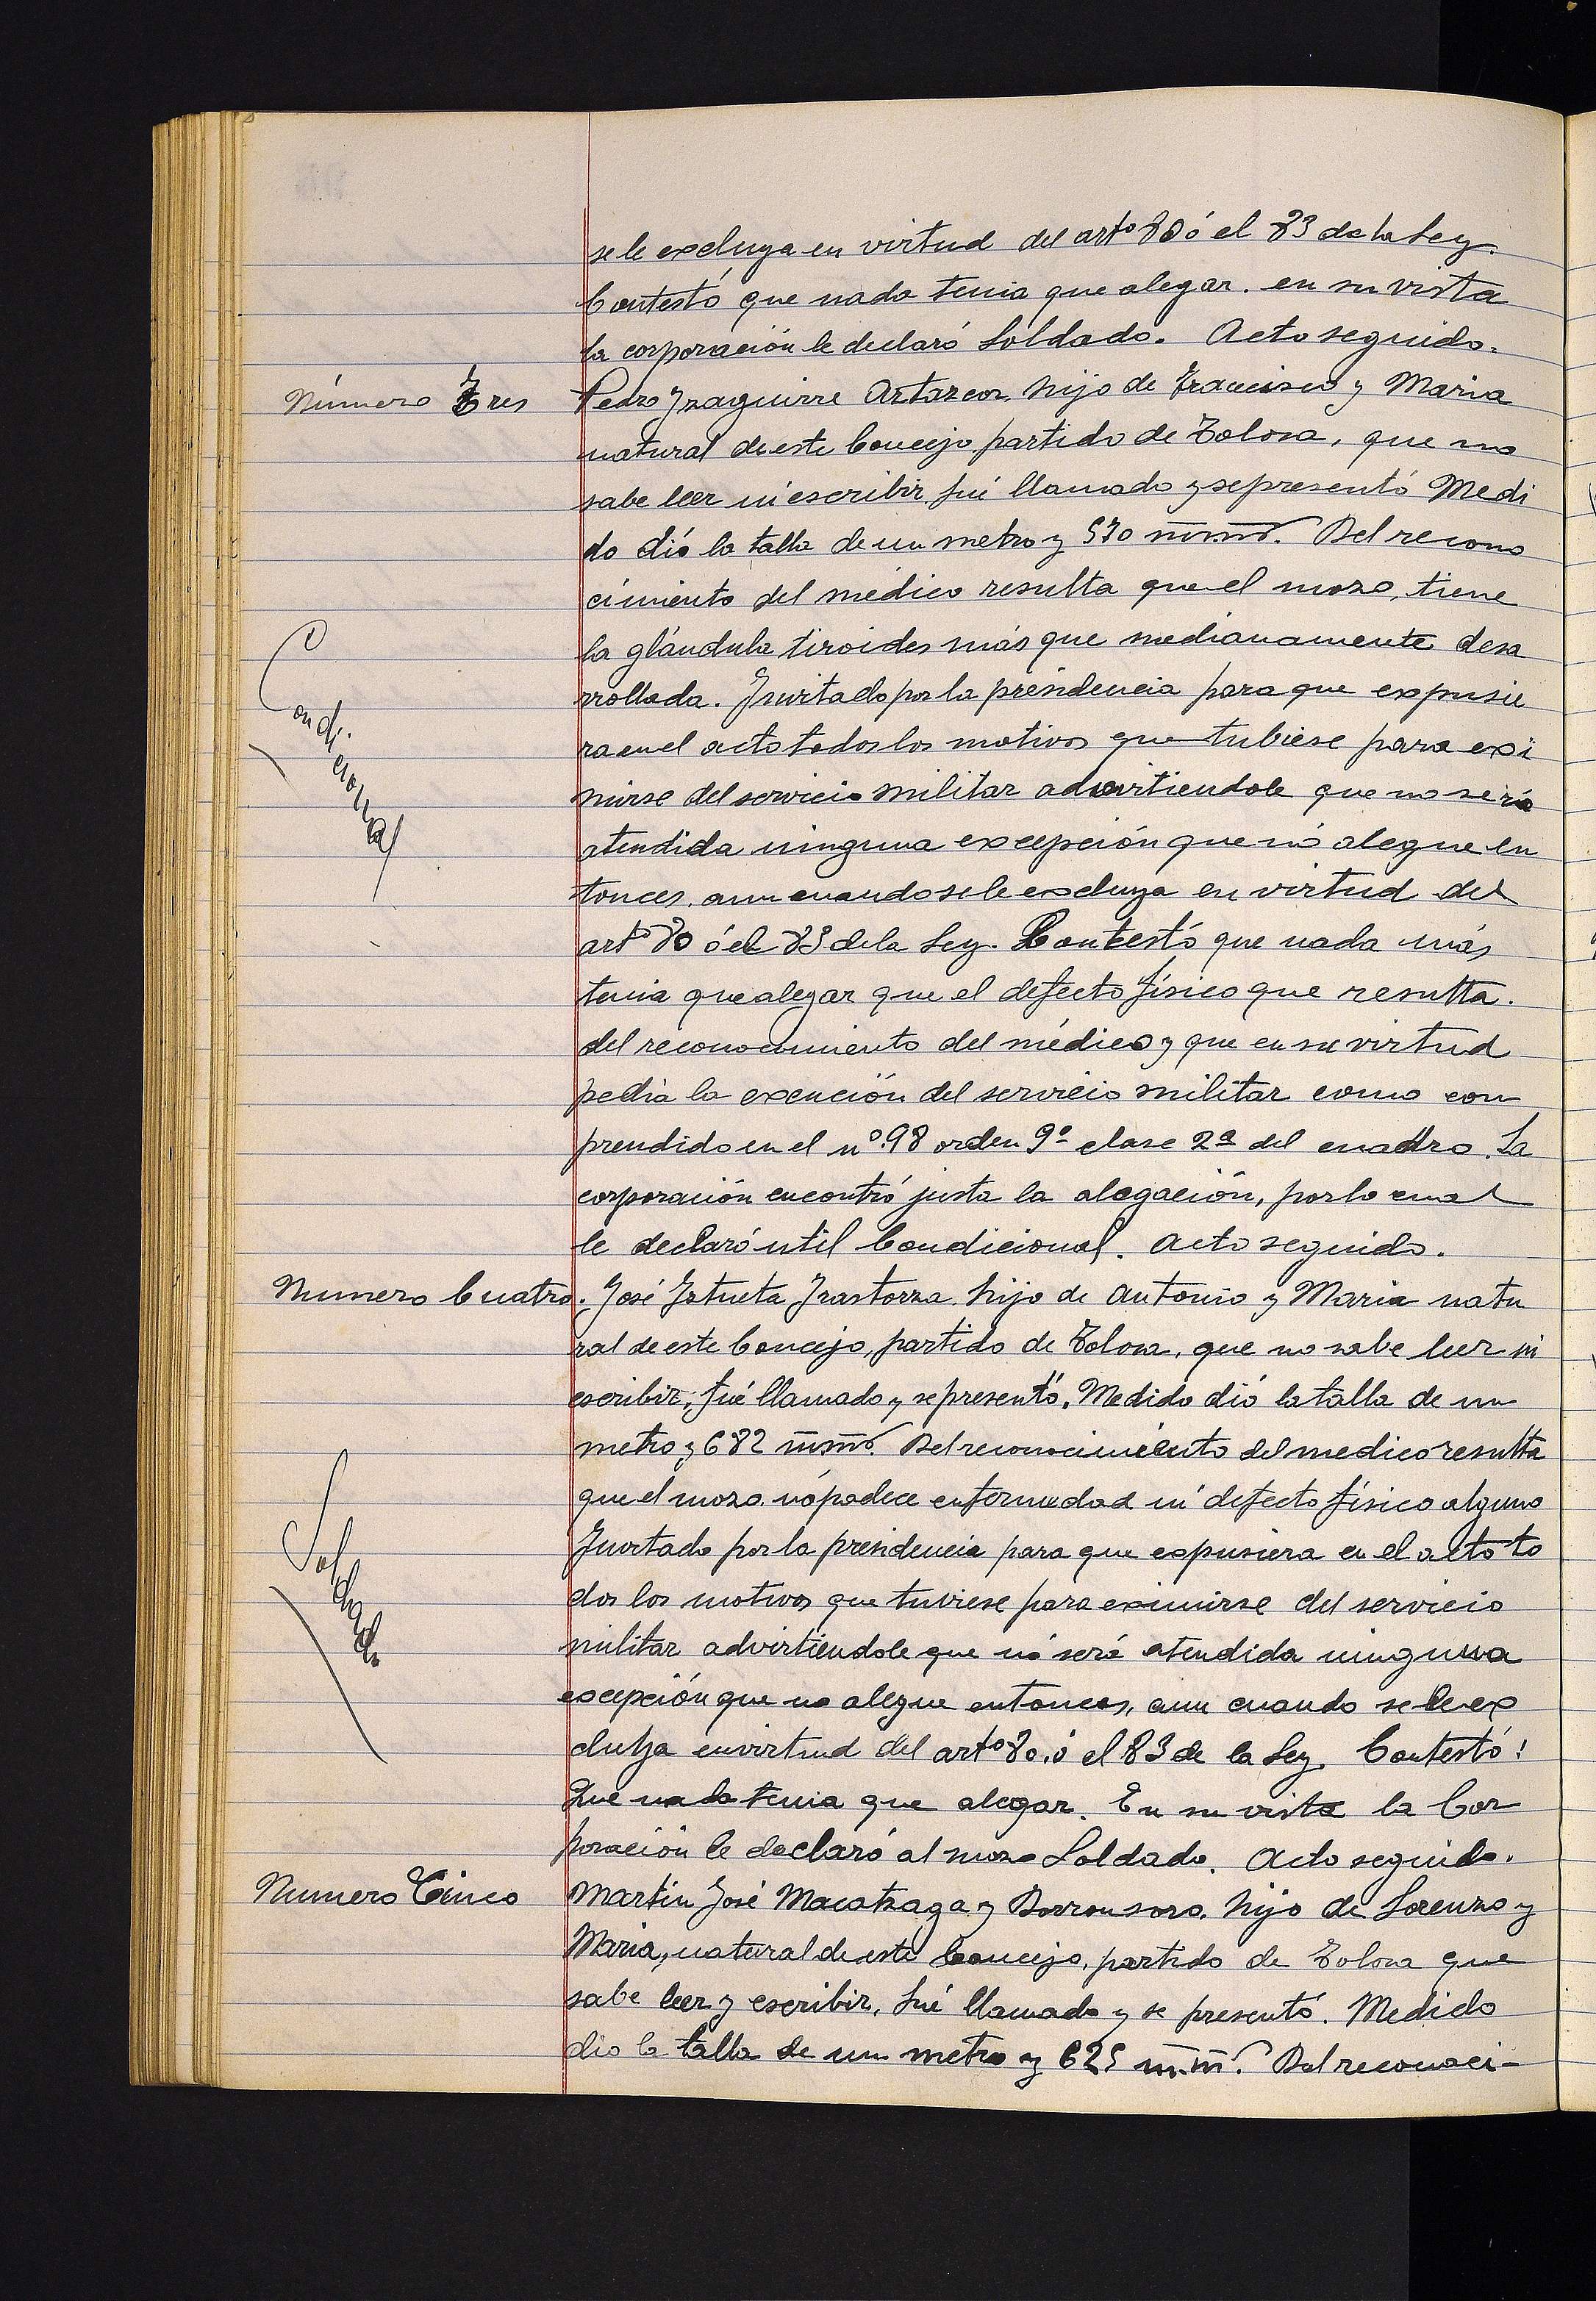 se le excluya en virtud del artº 80 ó el 83 de la Ley.
Contestó que nada tenia que alegar. en su vista
la corporación le declaró Soldado. Acto seguido.
Número Tres
Pedro Yzaguirre Artazcoz, hijo de Francisco y Maria
natural de este Concejo partido de Tolosa, que no
sabe leer ni escribir fué llamado y se presentó Medi
do dió la talla de un metro y 570 m̅m̅s̅. Del recono
cimiento del médico resulta que el mozo, tiene
la glándula tiroides más que medianamente desa
rrollada. Invitado por la presidencia para que expusie
Condicional
ra en el acto todos los motivos que tubiese para exi
mirse del servicio militar advirtiendole que no será
atendida ninguna excepción que nó alegue en
tonces, aun cuando se le excluya en virtud del
artº 80 ó el 83 de la Ley. Contestó que nada más
tenia que alegar que el defecto físico que resulta.
del reconocimiento del médico y que en su virtud
pedia la exención del servicio militar como com
prendido en el nº.98 orden 9º clase 2ª del cuadro. La
corporación encontró justa la alegación, por lo cual
le declaró útil Condicional. Acto seguido.
Numero Cuatro.
José Iztueta Irastorza hijo de Antonio y Maria natu
ral de este Concejo, partido de Tolosa, que no sabe leer ni
escribir, fué llamado y se presentó. Medido dió la talla de un
metro y 682 m̅m̅s̅. Del reconocimiento del medico resulta
que el mozo nó padece enfermedad ni defecto físico alguno
Soldado
Invitado por la presidencia para que expusiera en el acto to
dos los motivos que tuviese para eximirse del servicio
militar advirtiéndole que nó será atendida ninguna
excepción que no alegue entonces, aun cuando se le ex
cluya en virtud del artº 80, ó el 83 de la Ley. Contestó:
Que nada tenia que alegar. En su vista la Cor
poración le declaró al mozo Soldado. Acto seguido.
Numero Cinco
Martin José Macatzaga y Dorronsoro, hijo de Lorenzo y
Maria, natural de este Concejo, partido de Tolosa que
sabe leer y escribir, fué llamado y se presentó. Medido
dio la talla de un metro y 625 m̅.m̅s. Del reconoci-